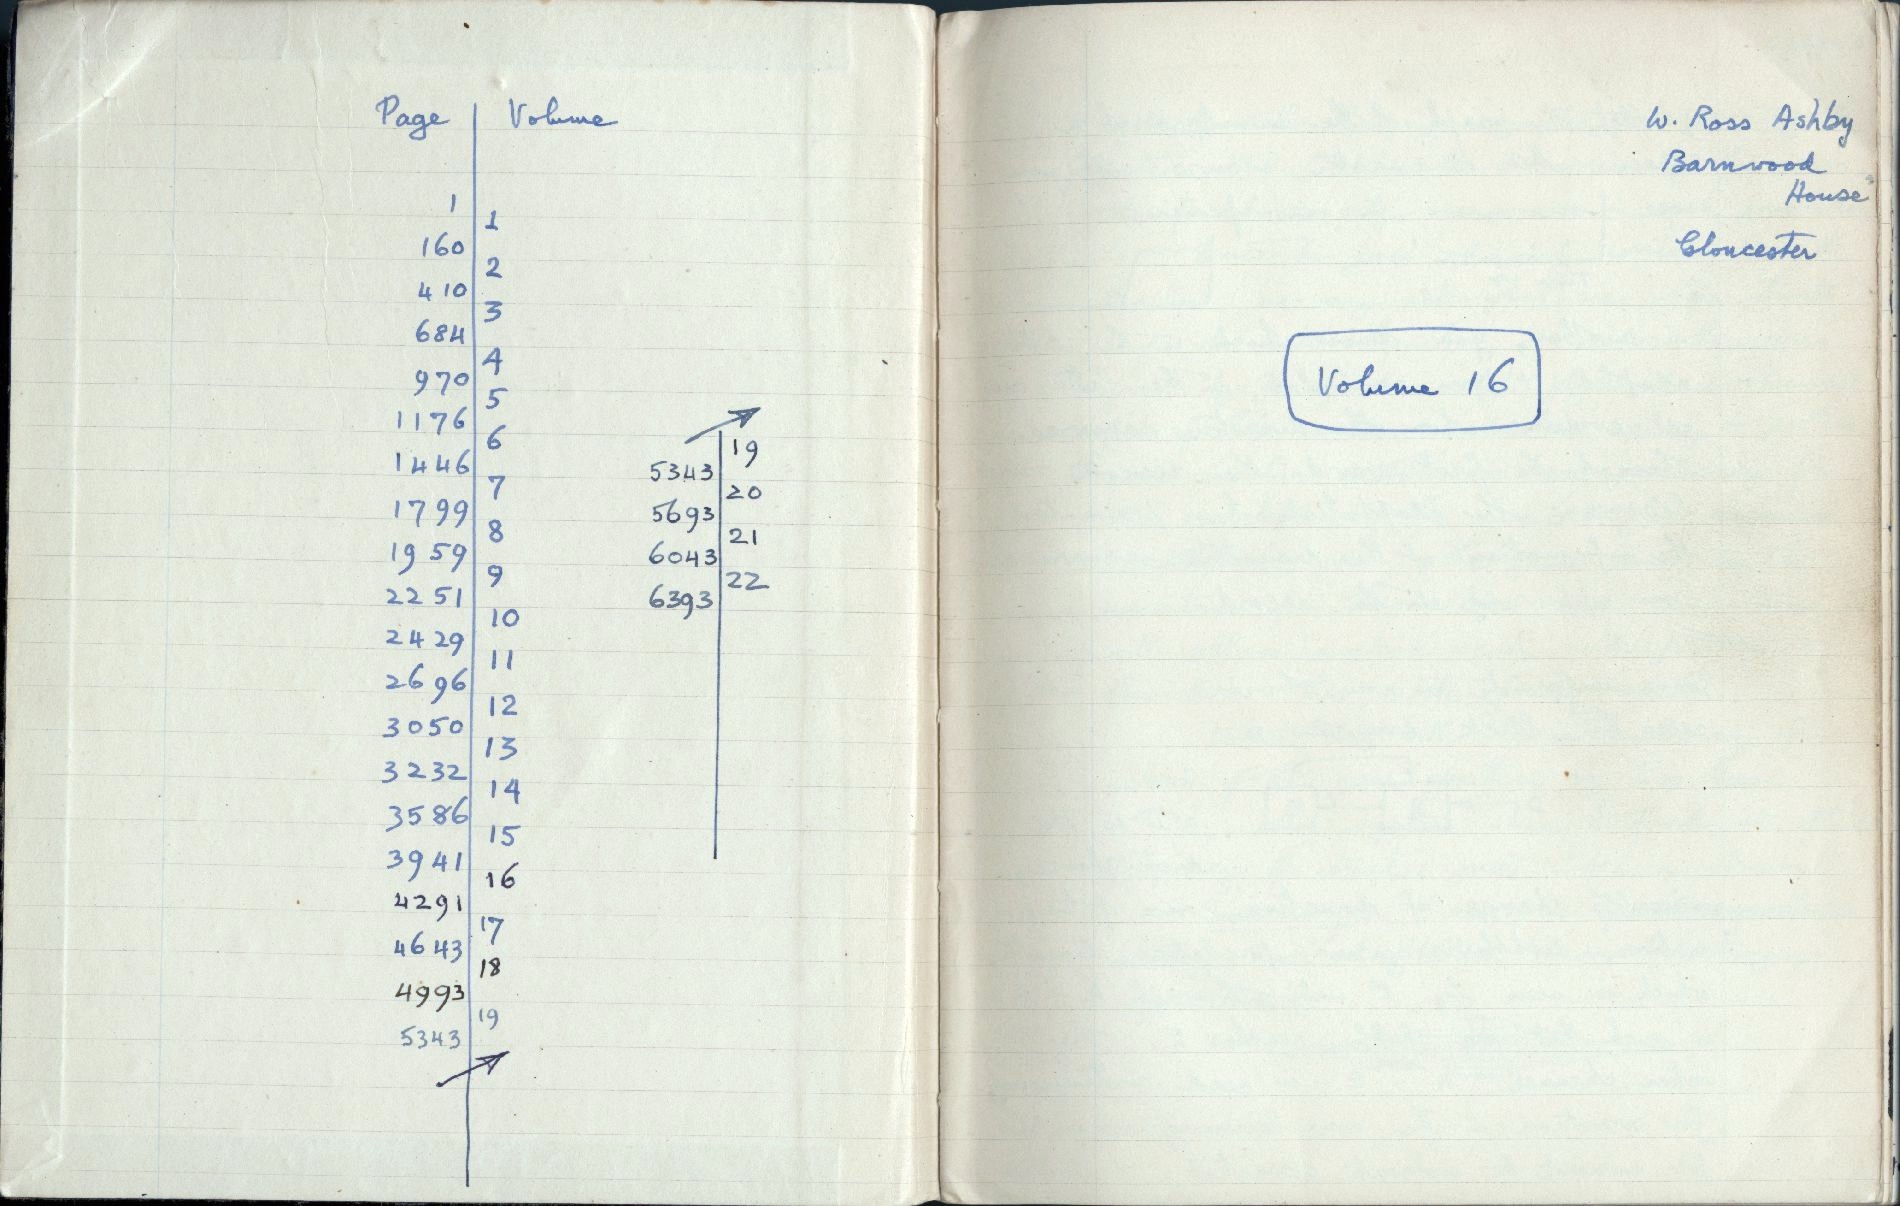 Page Volume
1
1
160
2
410
3
684
4
970
5
1176
6
1446
7
1799
8
1959
9
2251
10
2429
11
2696
12
3050
13
3232
14
3586
15
3941
16
4291
17
4643
18
4993
19
5343
19
5343
20
5693
21
6043
22
6393
W. Ross Ashby
Barnwood
House
Gloucester
Volume 16